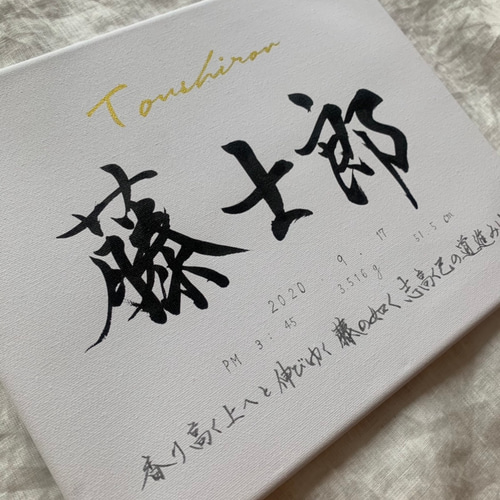 Toushirou
藤士郎
2020 . 9 . 17
PM 3 : 45 3516g 51.5cm
香り高く上へと伸びゆく藤の如く志高く己の道進み